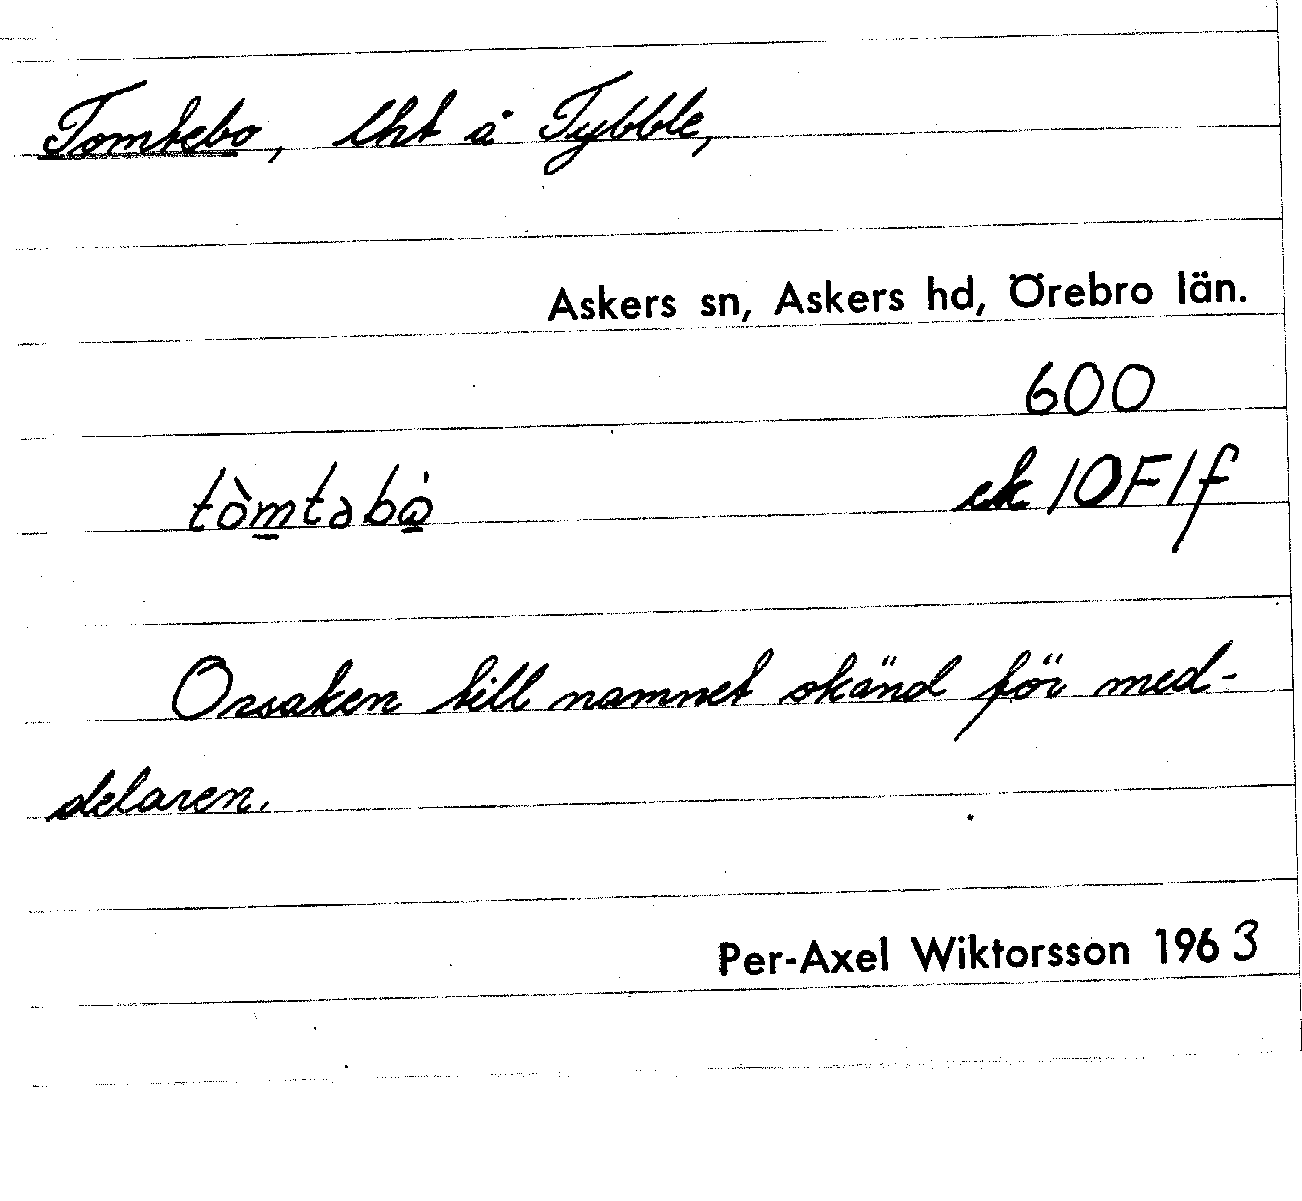 Tomtebo, lht å Tybble,
Askers sn, Askers hd, Örebro län.
600
tòmtabò̤ ek 10F1f
Orsaken till namnet okänd för med-
delaren.
Per-Axel Wiktorsson 1963